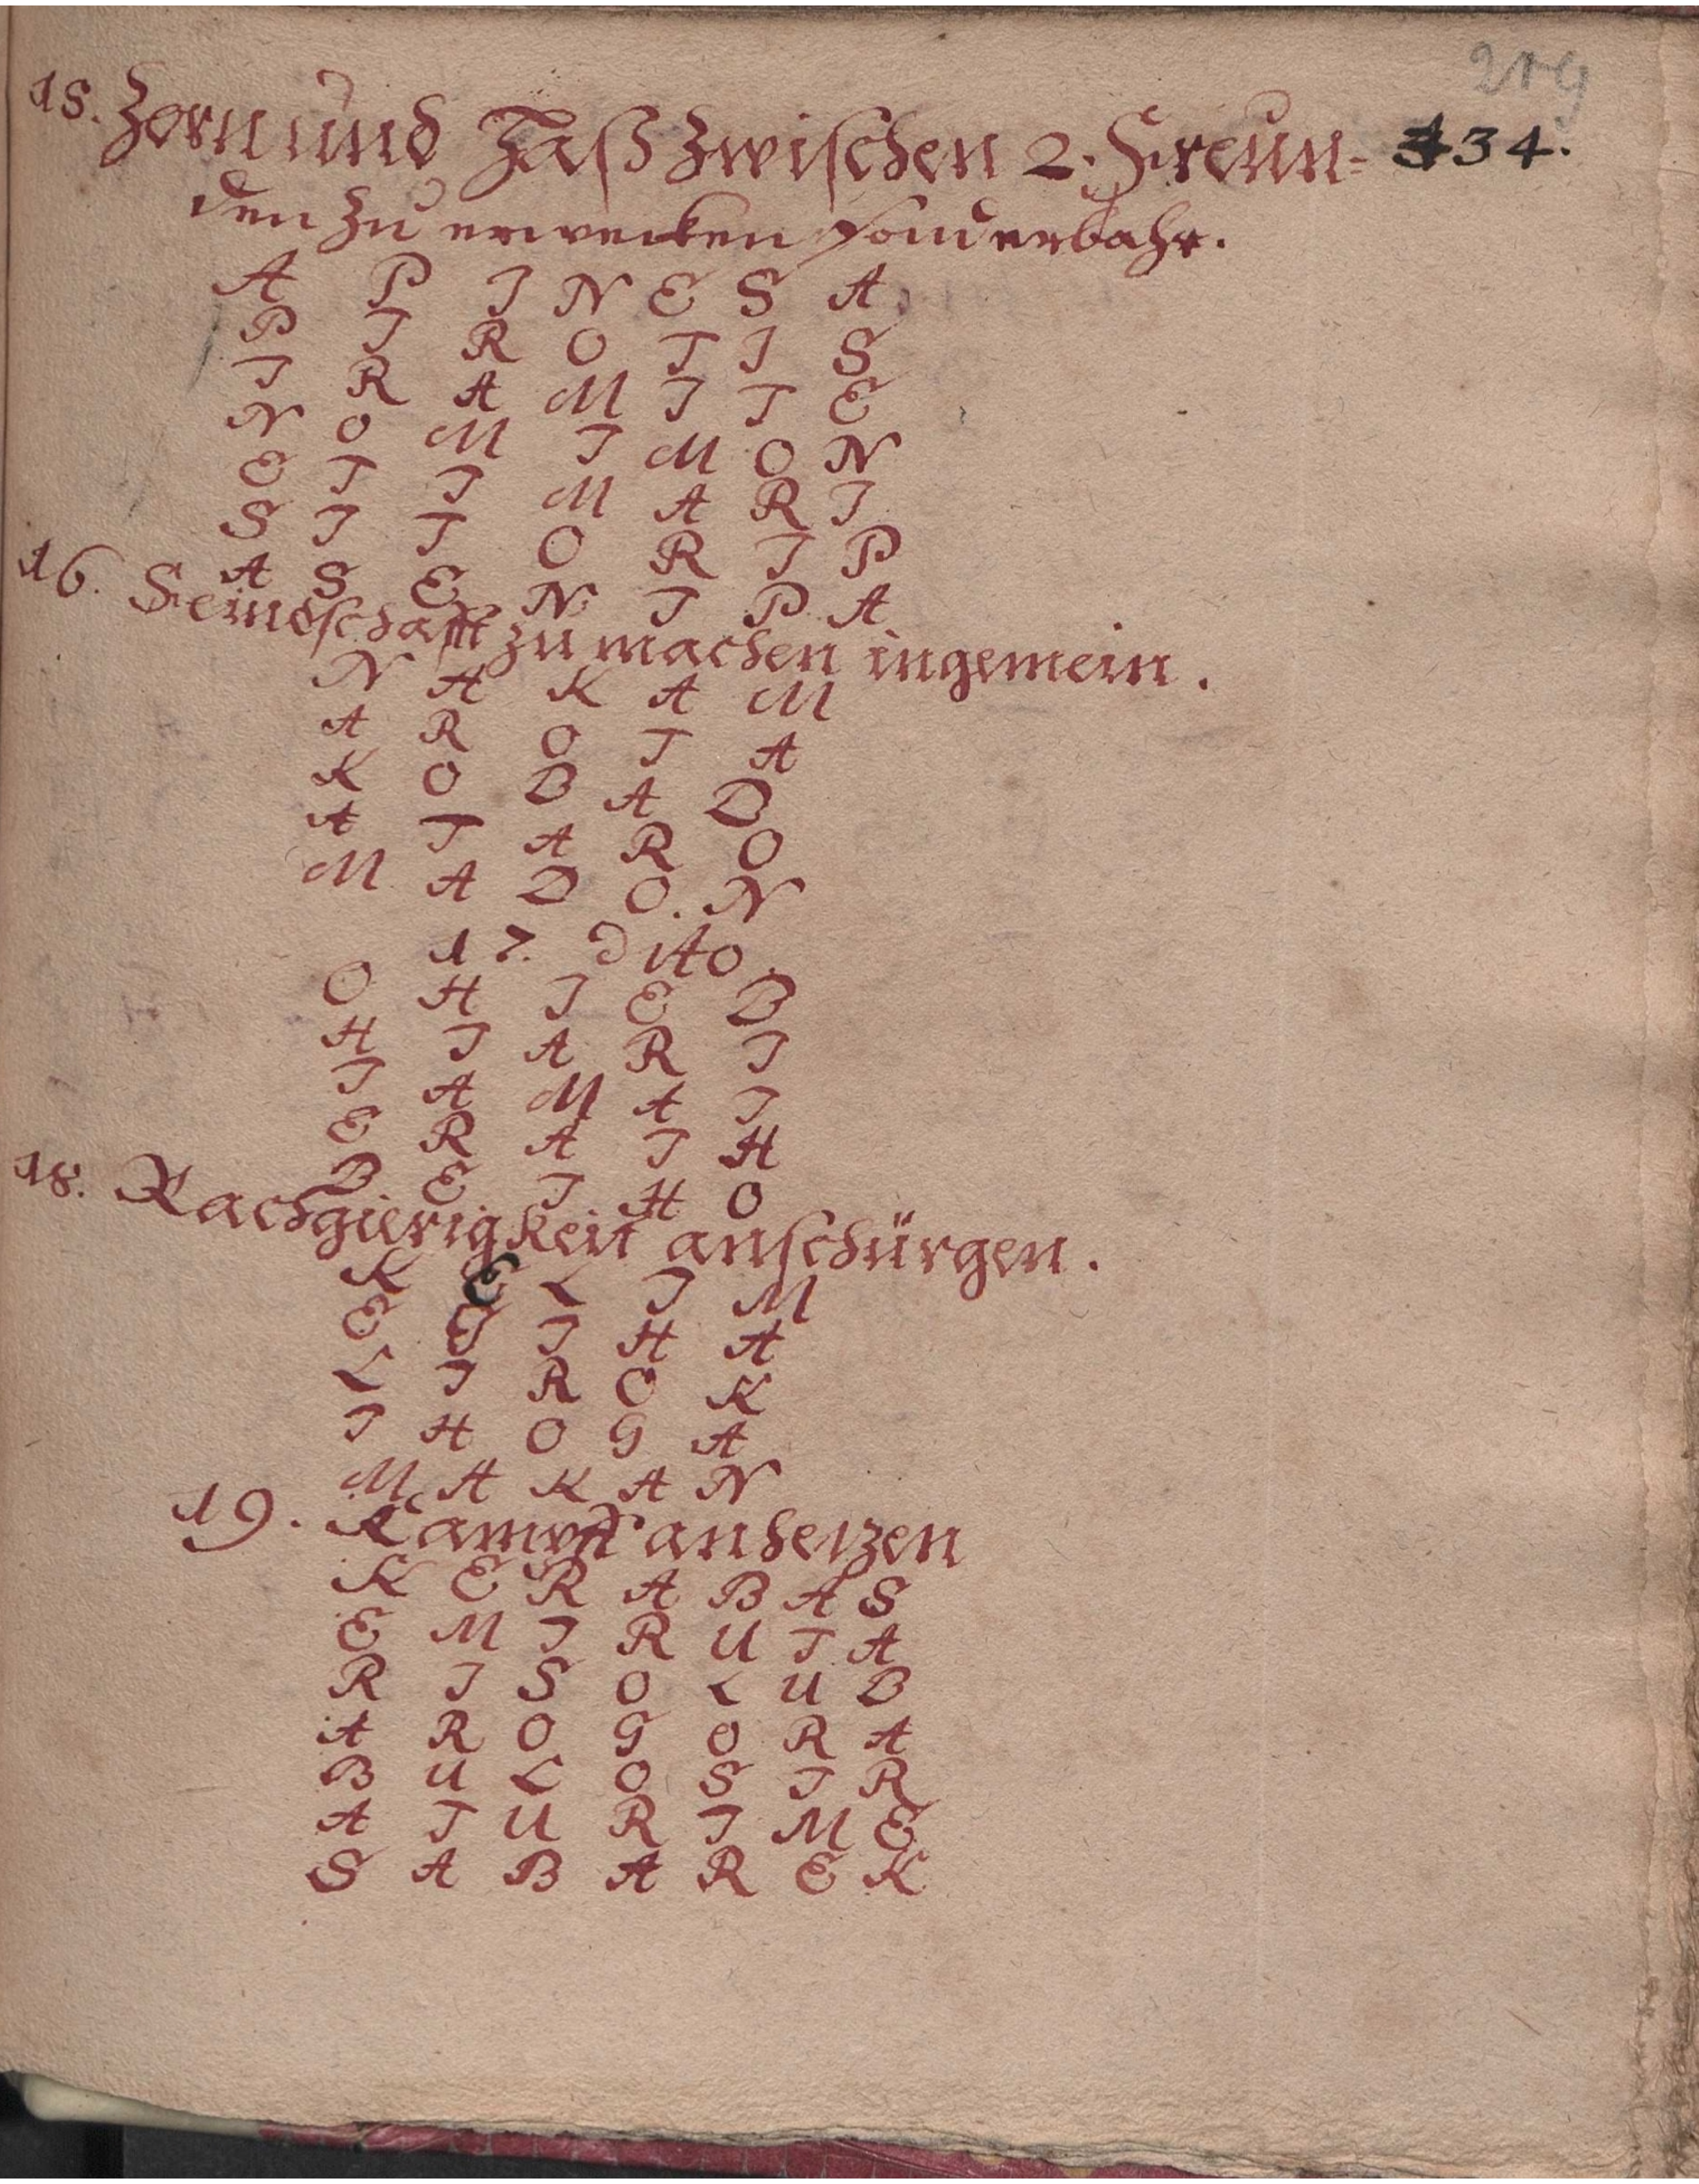 219
15. Zorn und Haß zwischen 2. Freun= 434.
den zu erwecken sonderbahr.
A P I N E S A
P I R O T I S
I R A M I T E
N O M I M O N
E T I M A R I
S I T O R I P
A S E N I P A
16. Feindschafft zu machen ingemein.
N A K A M
A R O T A
K O B A D
A T A R O
M A D O. N
17. dito.
O H I E B
H I A R I
I A M A I
E R A I H
B E I H O
18. Rachgierigkeit anschürgen.
K E L I M
E I I H A
L I R O K
I H O G A
M A K A N
19. Kampff anhetzen
K E R A B A S
E M I R U T A
R I S O L U B
A R O G O R A
B U L O S I R
A T U R I M E
S A B A R E K